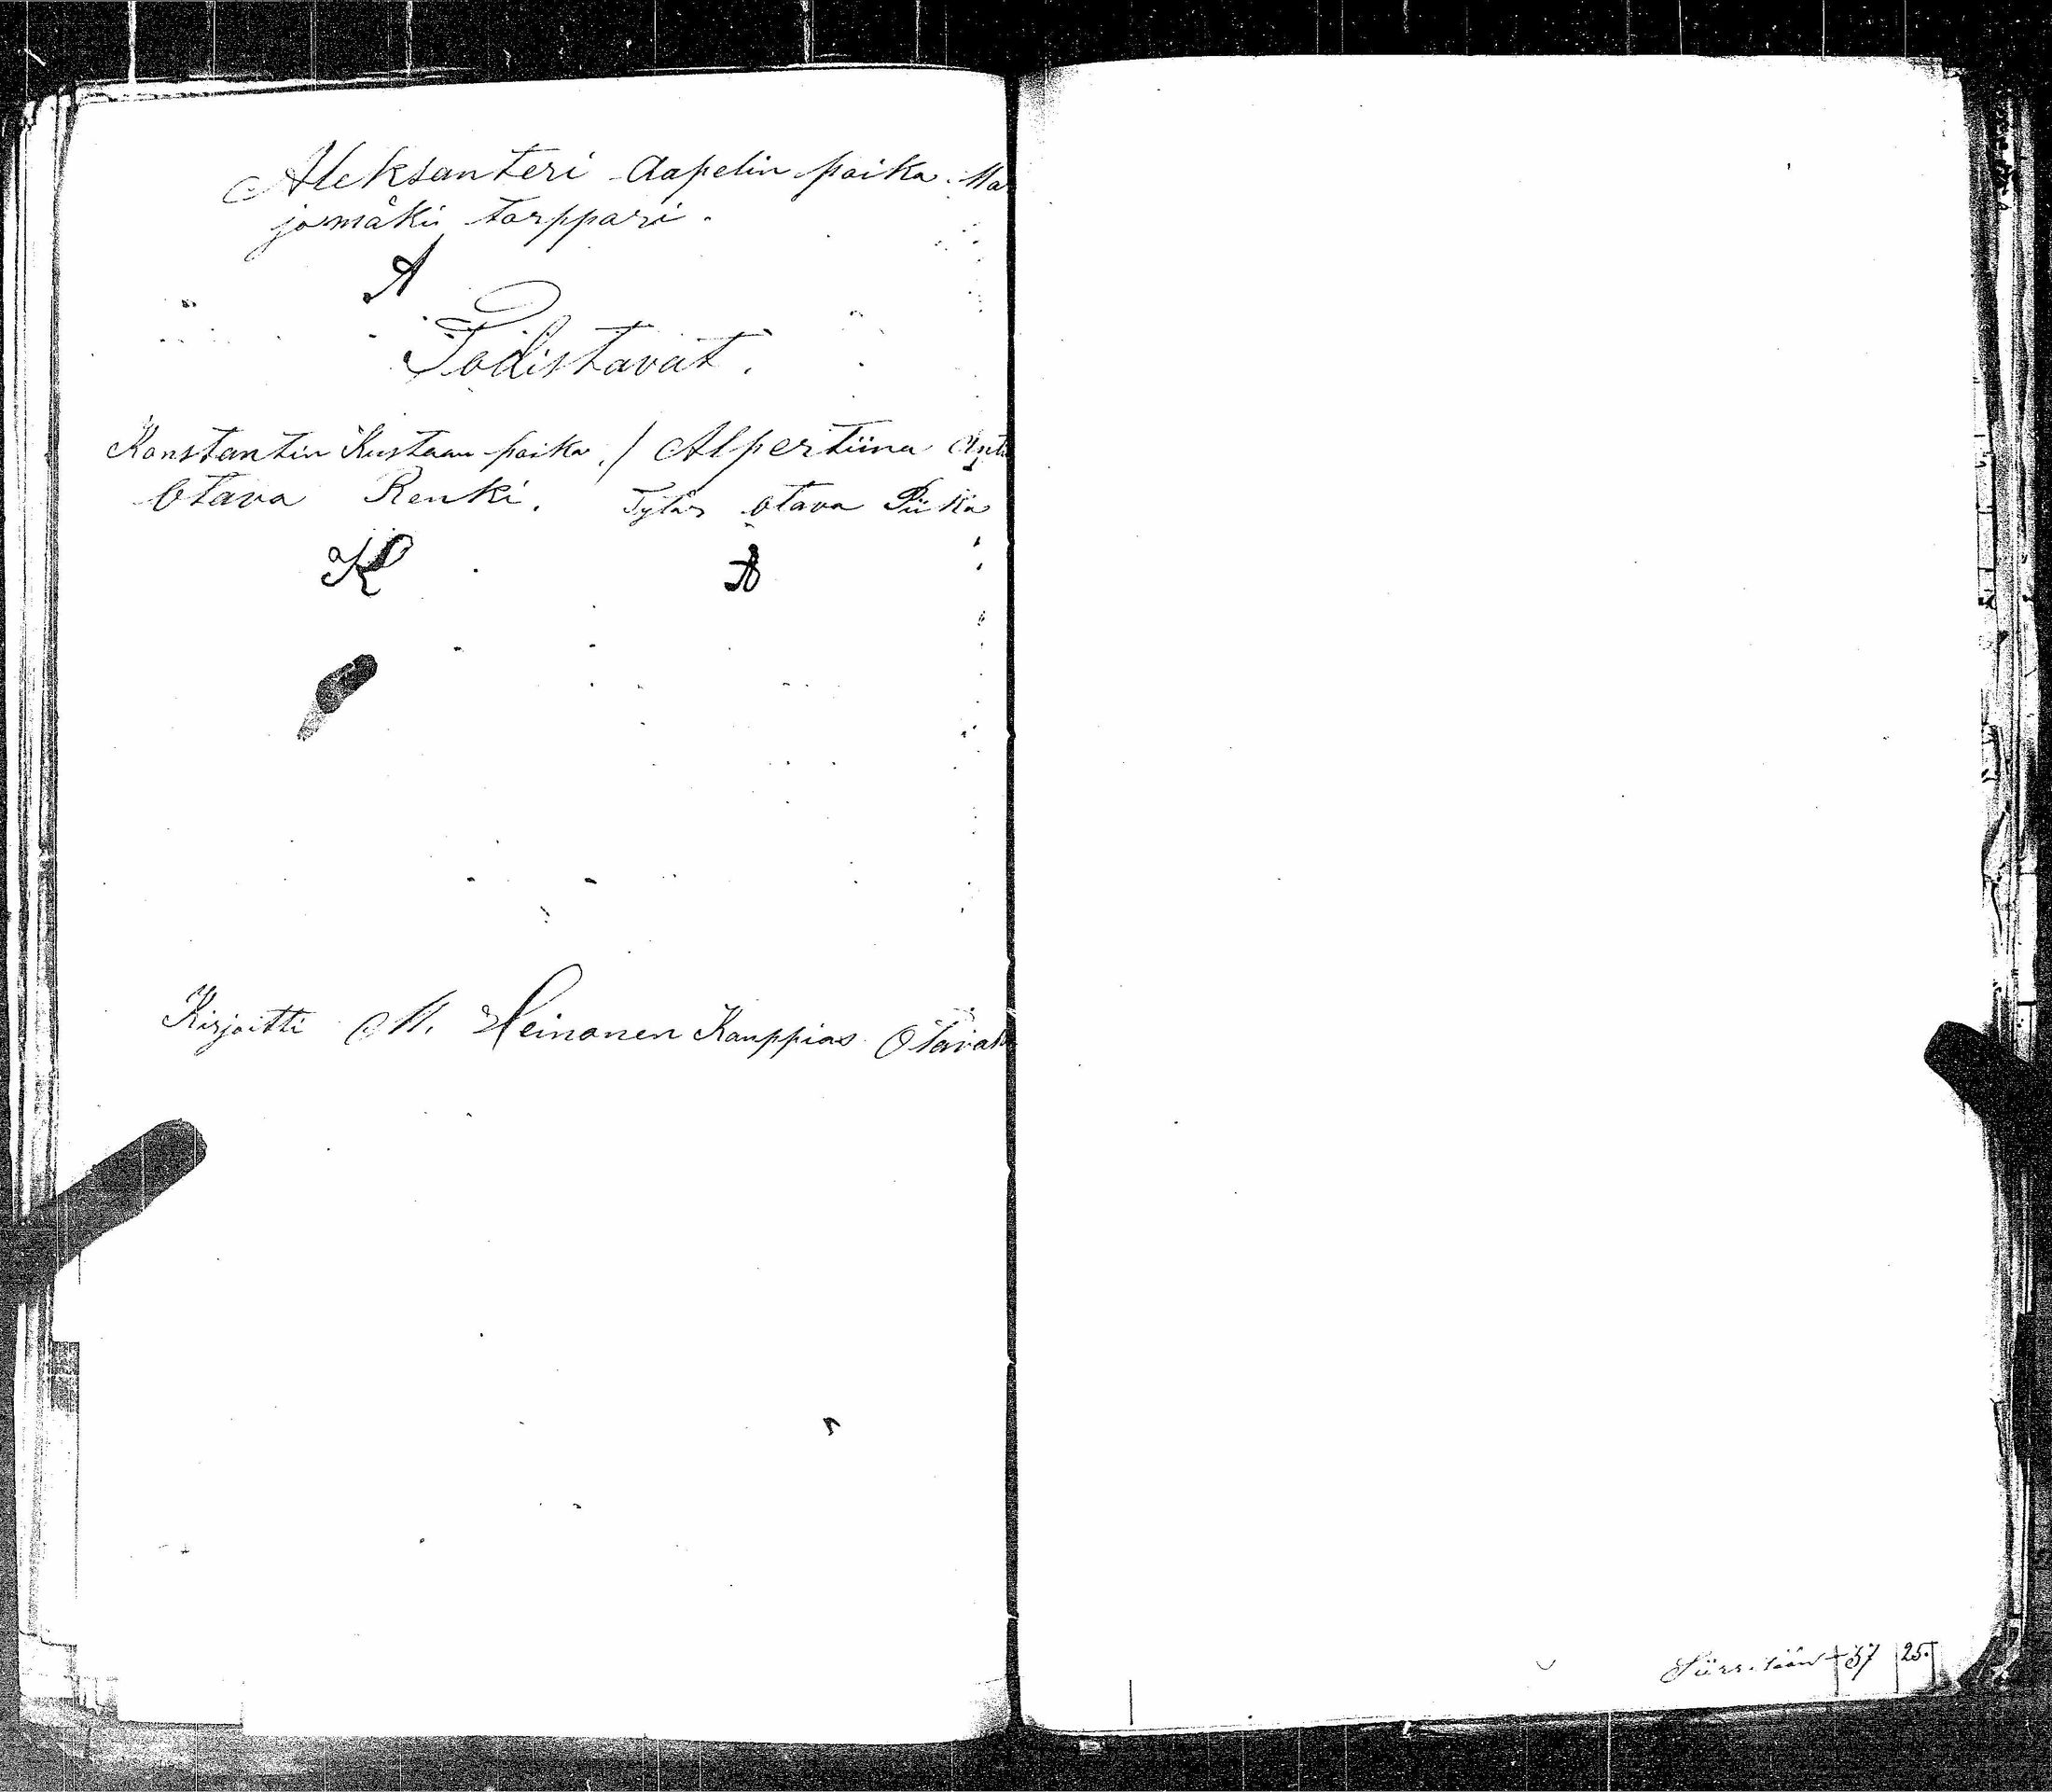 Aleksanteri Aapelin poika. Mar
jomäki torppari.
A
Todistavat.
Konstantin Kustaan poika. / Alpertiina
Otava Renki. Tytär otava Piika
K A
Kirjoitti M. Heinonen Kauppias
Siirretään 57 25.